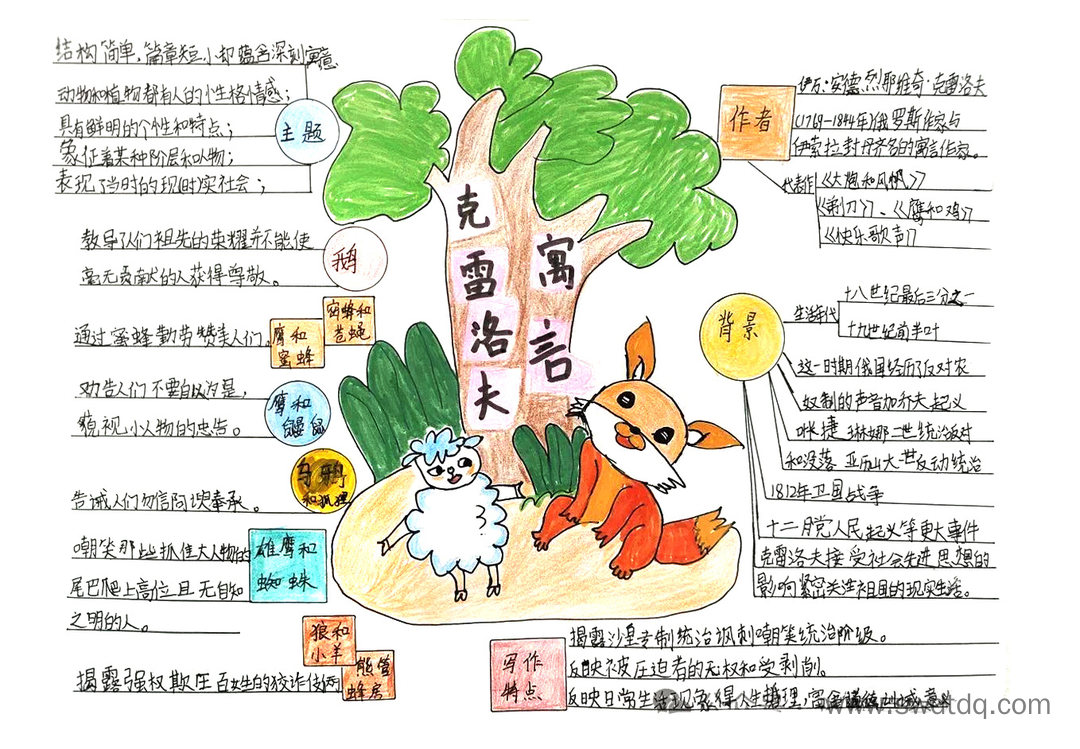 结构简单,篇章短小却蕴含深刻寓意
动物和植物都有人的个性格情感;
具有鲜明的个性和特点;
象征着某种阶层和人物;
表现了当时的现(时)实社会;
主题
教导人们祖先的荣耀并不能使
毫无贡献的人获得尊敬。
鹅
通过蜜蜂勤劳赞美人们。
鹰和
蜜蜂
蜜蜂和
苍蝇
劝告人们不要自以为是,
藐视小人物的忠告。
鹰和
鼹鼠
告诫人们勿信阿谀奉承。
乌鸦
和狐狸
嘲笑那些抓住大人物的
尾巴爬上高位且无自知
之明的人。
雄鹰和
蜘蛛
狼和
小羊
熊管
蜂房
揭露强权欺压百姓的狡诈伎俩
克
雷
洛
夫
寓
言
作者
伊万·安德烈耶维奇·克雷洛夫
(1769-1844年)俄罗斯作家与
伊索拉封丹齐名的寓言作家。
代表作
《大炮和风帆》
《剃刀》、《鹰和鸡》
《快乐歌声》
背景
生活年代
十八世纪最后三分之一
十九世纪前半叶
这一时期俄国经历了反对农
奴制的声音加乔夫起义
叶捷琳娜二世统治
和没落 亚历山大一世反动统治
1812年卫国战争
十二月党人民起义等重大事件
克雷洛夫接受社会先进思想的
影响紧密关连祖国的现实生活。
写作
特点
揭露沙皇专制统治讽刺嘲笑统治阶级。
反映被压迫者的无权和受剥削。
反映日常生活现象得人生哲理,富含道德训诫意义
www.swdtdq.com